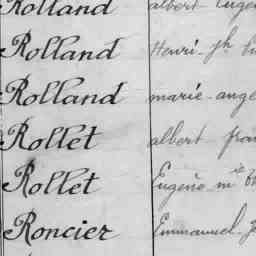 Rolland albert Eugèn
Rolland Henri-Jh
Rolland marie-ange
Rollet albert fran
Rollet Eugène mie
Roncier Emmanuel-J